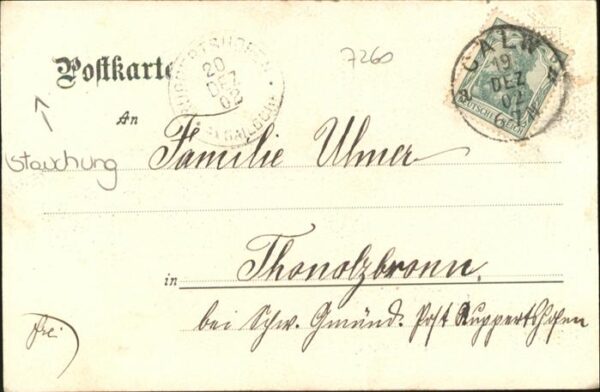 7260
Postkarte
RUPPERTSHOFEN
20 DEZ
02
GAILDORF
CALW
19
DEZ
02
DEUTSCHES REICH
An
Familie Ulmer
Stauchung
in Thonolzbronn.
bei Schw. Gmünd. Post Ruppertshofen
frei